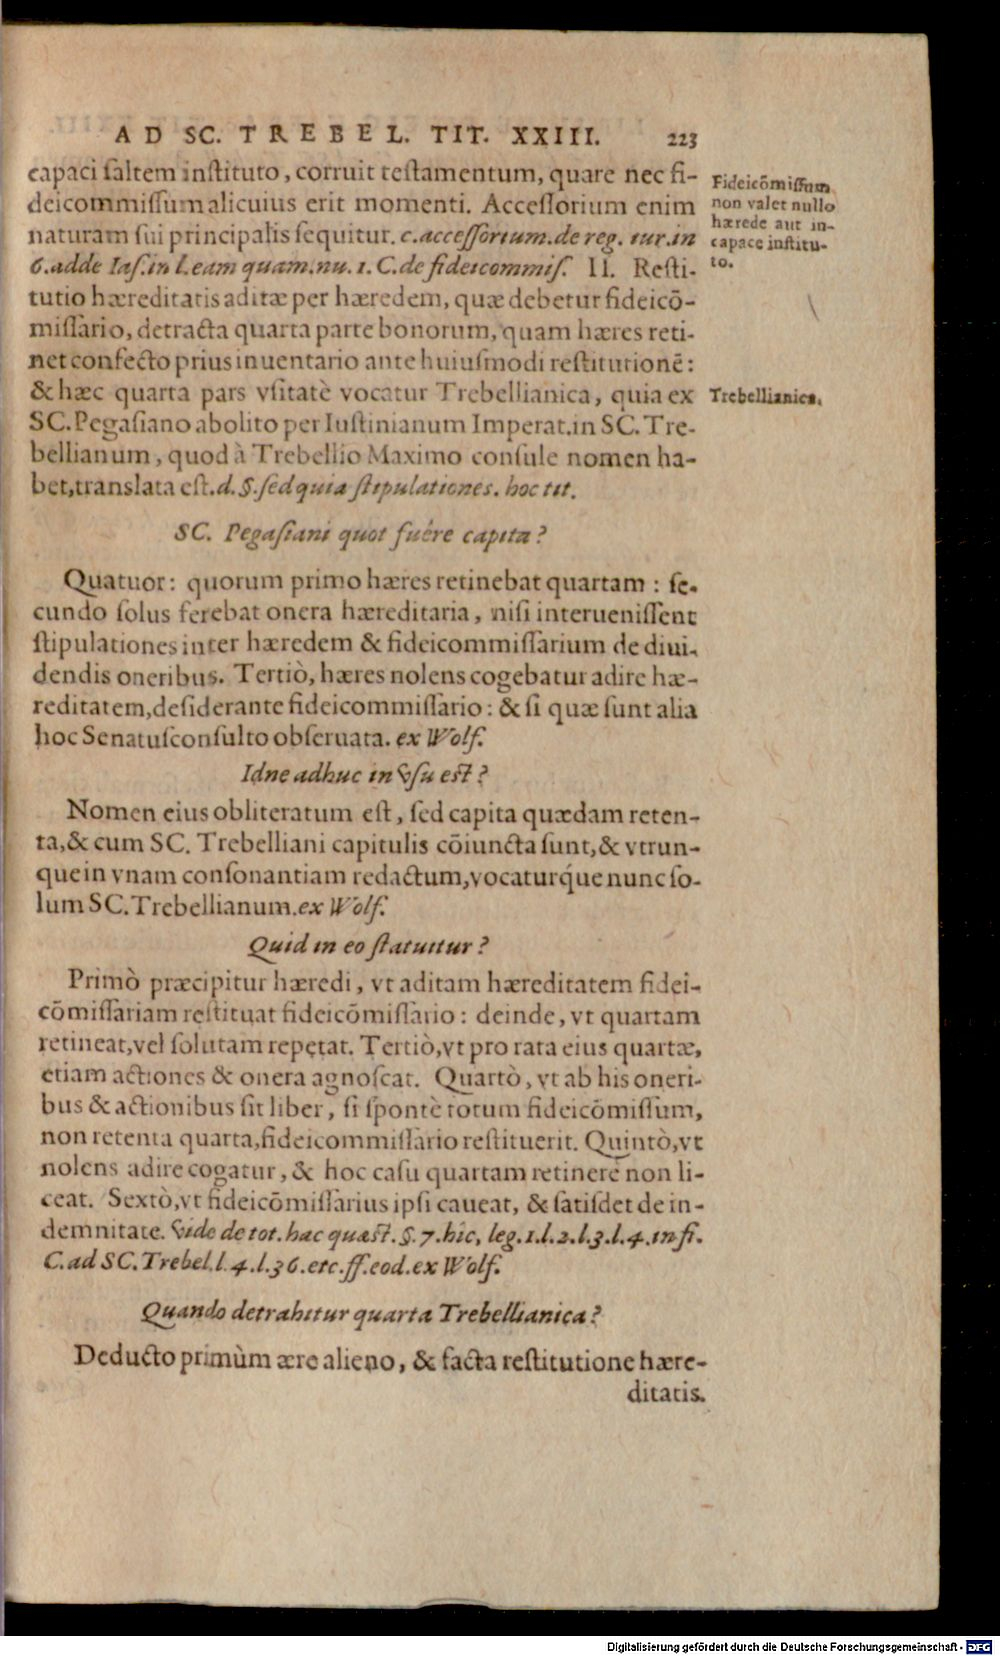 AD SC. TREBEL. TIT. XXIII. 223
capaci saltem instituto, corruit testamentum, quare nec fi-
deicommissum alicuius erit momenti. Accessorium enim
naturam sui principalis sequitur. c. accessorium. de reg. iur. in
6. adde Ias. in l. eam quam. nu. 1. C. de fideicommis. II. Resti-
tutio hæreditatis aditæ per hæredem, quæ debetur fideicõ-
missario, detracta quarta parte bonorum, quam hæres reti-
net confecto prius inuentario ante huiusmodi restitutionẽ:
& hæc quarta pars vsitatè vocatur Trebellianica, quia ex
SC. Pegasiano abolito per Iustinianum Imperat. in SC. Tre-
bellianum, quod à Trebellio Maximo consule nomen ha-
bet, translata est. d. §. sed quia stipulationes. hoc tit.
Fideicõmissum
non valet nullo
hærede aut in-
capace institu-
to.
Trebellianica.
SC. Pegasiani quot fuêre capita?
Quatuor: quorum primo hæres retinebat quartam: se-
cundo solus ferebat onera hæreditaria, nisi interuenissent
stipulationes inter hæredem & fideicommissarium de diui-
dendis oneribus. Tertiò, hæres nolens cogebatur adire hæ-
reditatem, desiderante fideicommissario: & si quæ sunt alia
hoc Senatusconsulto obseruata. ex Wolf.
Idne adhuc in vsu est?
Nomen eius obliteratum est, sed capita quædam reten-
ta, & cum SC. Trebelliani capitulis cõiuncta sunt, & vtrun-
que in vnam consonantiam redactum, vocaturq́ue nunc so-
lum SC. Trebellianum. ex Wolf.
Quid in eo statuitur?
Primò præcipitur hæredi, vt aditam hæreditatem fidei-
cõmissariam restituat fideicõmissario: deinde, vt quartam
retineat, vel solutam repetat. Tertiò, vt pro rata eius quartæ,
etiam actiones & onera agnoscat. Quartò, vt ab his oneri-
bus & actionibus sit liber, si spontè totum fideicõmissum,
non retenta quarta, fideicommissario restituerit. Quintò, vt
nolens adire cogatur, & hoc casu quartam retinere non li-
ceat. Sextò, vt fideicõmissarius ipsi caueat, & satisdet de in-
demnitate. vide de tot. hac quæst. §. 7. hic, leg. 1. l. 2. l. 3. l. 4. in fi.
C. ad SC. Trebel. l. 4. l. 36. etc. ff. eod. ex Wolf.
Quando detrahitur quarta Trebellianica?
Deducto primùm ære alieno, & facta restitutione hære-
ditatis.
Digitalisierung gefördert durch die Deutsche Forschungsgemeinschaft - DFG